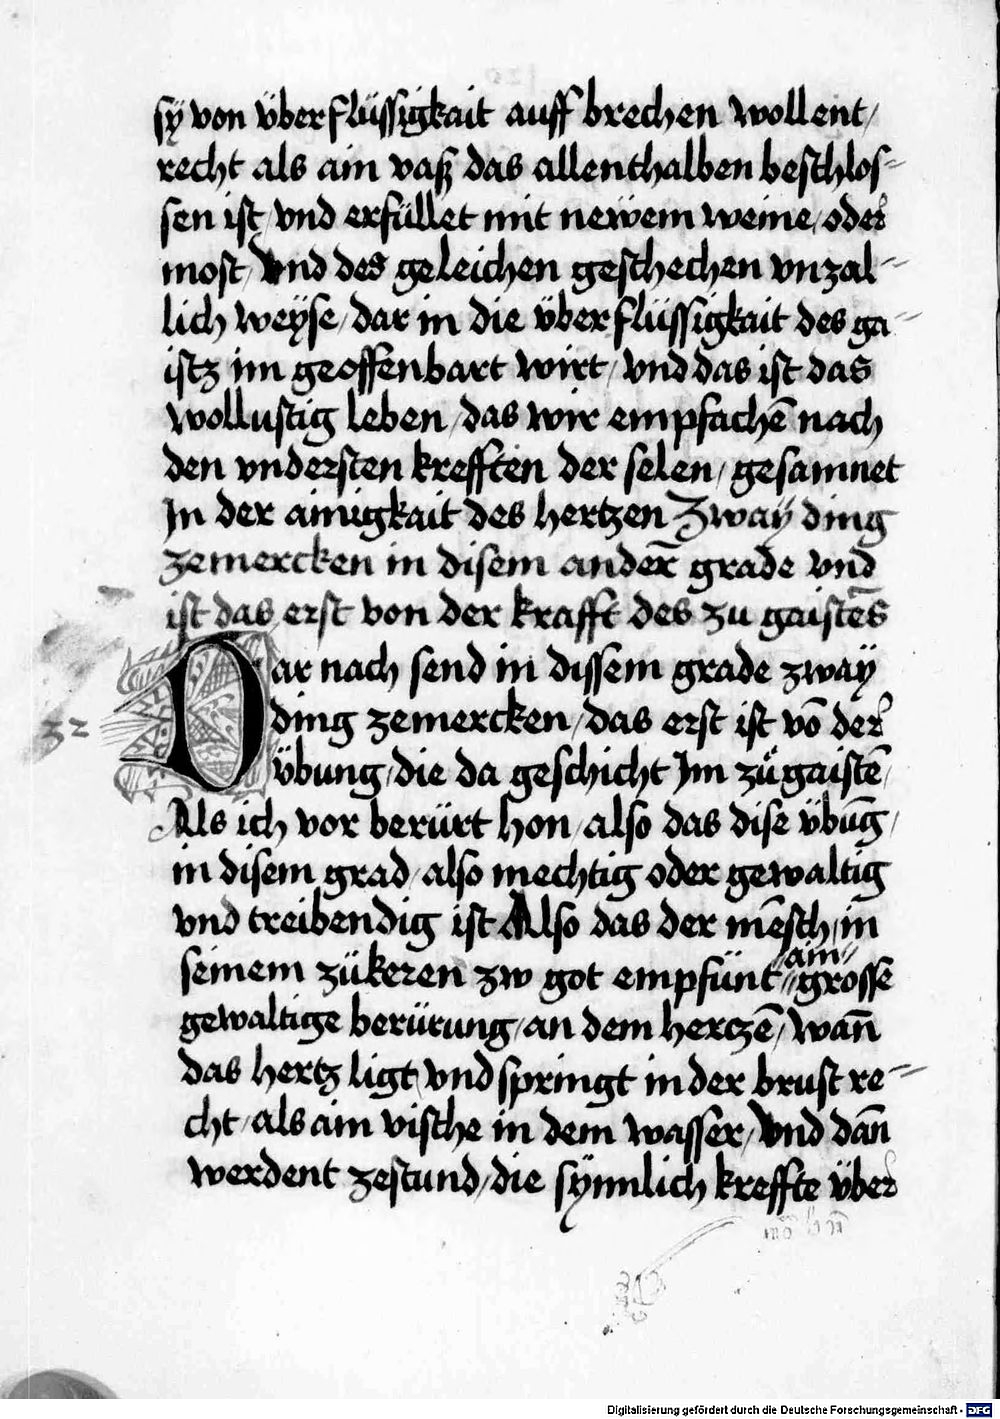 sÿ von überflüssigkait auff brechen wollent/
recht als ain vaß das allenthalben beschlos-
sen ist/ vnd erfüllet mit newem weine/ oder
most/ vnd des geleichen geschechen vnzal-
lich weyse/ dar in die überflüssigkait des ga-
istz im geoffenbart wirt/ vnd das ist das
wollustig leben/ das wir empfachē nach
den vndersten krefften der selen/ gesamnet
Jn der ainigkait des hertzen Zwaÿ ding
zemercken in disem anderr̄ grade vnd
ist das erst von der krafft des zu gaistēs
Dar nach send in dissem grade zwaÿ
32
ding zemercken/ das erst ist vō der
übung/ die da geschicht Jm zůgaistē/
Als ich vor berürt hon/ also das dise übūg/
in disem grad/ also mechtig oder gewaltig
vnd treibendig ist Also das der mēsch/ in
seinem zükeren zw got empfünt ain grosse
gewaltige berürung/ an dem herczē/ wañ
das hertz ligt/ vnd springt in der brust re-
cht/ als ain vische in dem wasser/ vnd dañ
werdent zestund/ die sÿnnlich kreffte über
Digitalisierung gefördert durch die Deutsche Forschungsgemeinschaft - DFG